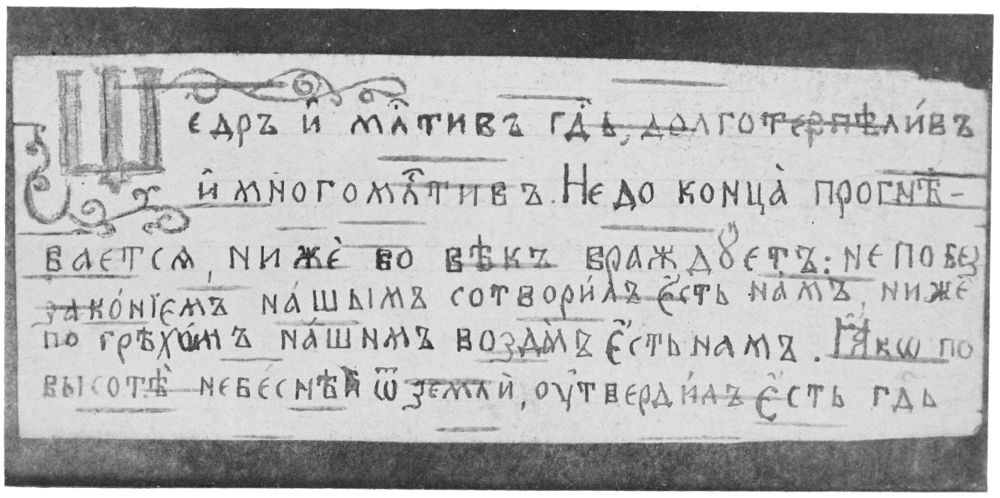 Щедръ и҆ млⷭ҇тивъ гдⷭ҇ь, долготерпѣли́въ
и҆ многомлⷭ҇тивъ. Не до конца̀ прогнѣ-
вается, нижѐ во вѣкъ враждꙋетъ: не по без
зако́нїємъ на́шымъ сотвори́лъ є҆́сть на́мъ, нижѐ
по грѣхѡ́мъ на́шимъ возда́лъ є҆́сть намъ. Ꙗ҆́кѡ по
высотѣ̀ небе́снѣй ѿ землѝ, оу҆тверди́лъ є҆́сть гдⷭ҇ь